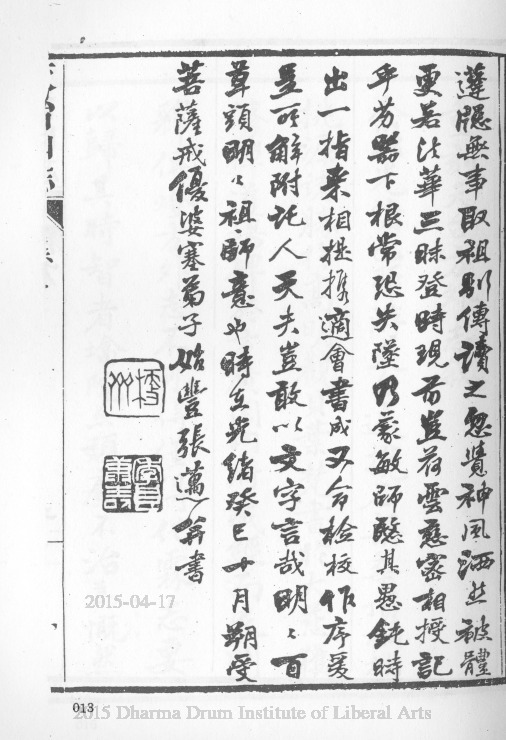 無事取祖馴傳讀之忽覺神風洒然被體
更若法華三昧登時現前豈荷靈應密相授記
乎芳器下根常恐失墜乃蒙敏師愍其愚鈍時
出一指來相提携適會書成又命檢校作序爰
呈所解附託人天夫豈敢以文字言哉明〻百
草頭明〻祖師意也時在光緒癸巳十月朔受
菩薩戒優婆塞弟子始豐張書
2015-04-17
013
2015 Dharma Drum Institute of Liberal Arts